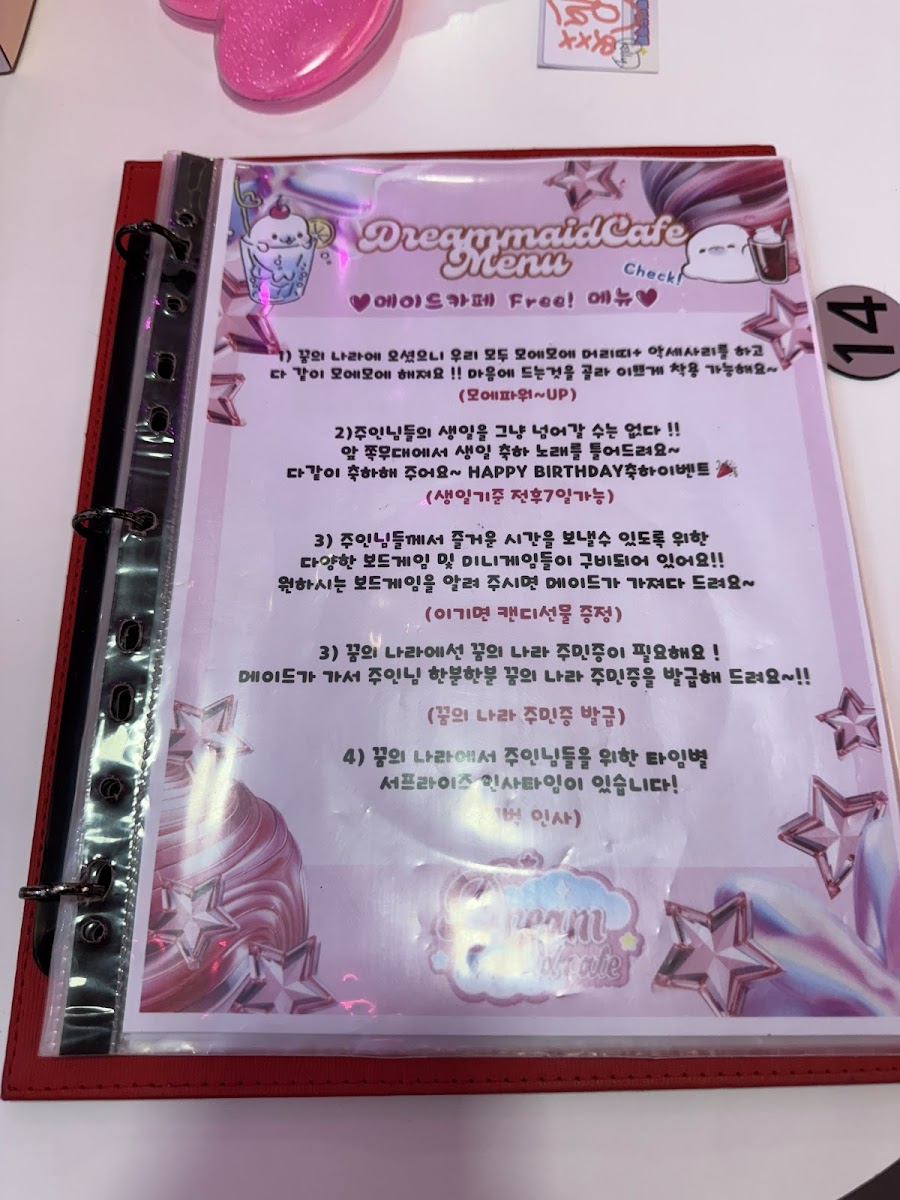 DreammaidCafe
Menu
Check!
♥메이드카페 Free! 메뉴♥
14
1) 꿈의 나라에 오셨으니 우리 모두 모에모에 머리띠+ 악세사리를 하고
다 같이 모에모에 해져요 !! 마음에 드는것을 골라 이쁘게 착용 가능해요~
(모에파워~UP)
2)주인님들의 생일을 그냥 넘어갈 수는 없다 !!
앞 쪽무대에서 생일 축하 노래를 틀어드려요~
다같이 축하해 주어요~ HAPPY BIRTHDAY축하이벤트 🎉
(생일기준 전후7일가능)
3) 주인님들께서 즐거운 시간을 보낼수 있도록 위한
다양한 보드게임 및 미니게임들이 구비되어 있어요!!
원하시는 보드게임을 알려 주시면 메이드가 가져다 드려요~
(이기면 캔디선물 증정)
3) 꿈의 나라에선 꿈의 나라 주민증이 필요해요 !
메이드가 가서 주인님 한분한분 꿈의 나라 주민증을 발급해 드려요~!!
(꿈의 나라 주민증 발급)
4) 꿈의 나라에서 주인님들을 위한 타임별
서프라이즈 인사타임이 있습니다!
인사)
Dream